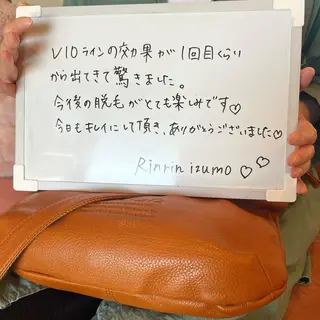 VIOラインの効果が1回目くらい
から出てきて驚きました。
今後の脱毛がとても楽しみです♡
今日もキレイにして頂き、ありがとうございました♡
Rinrin izumo ♡♡